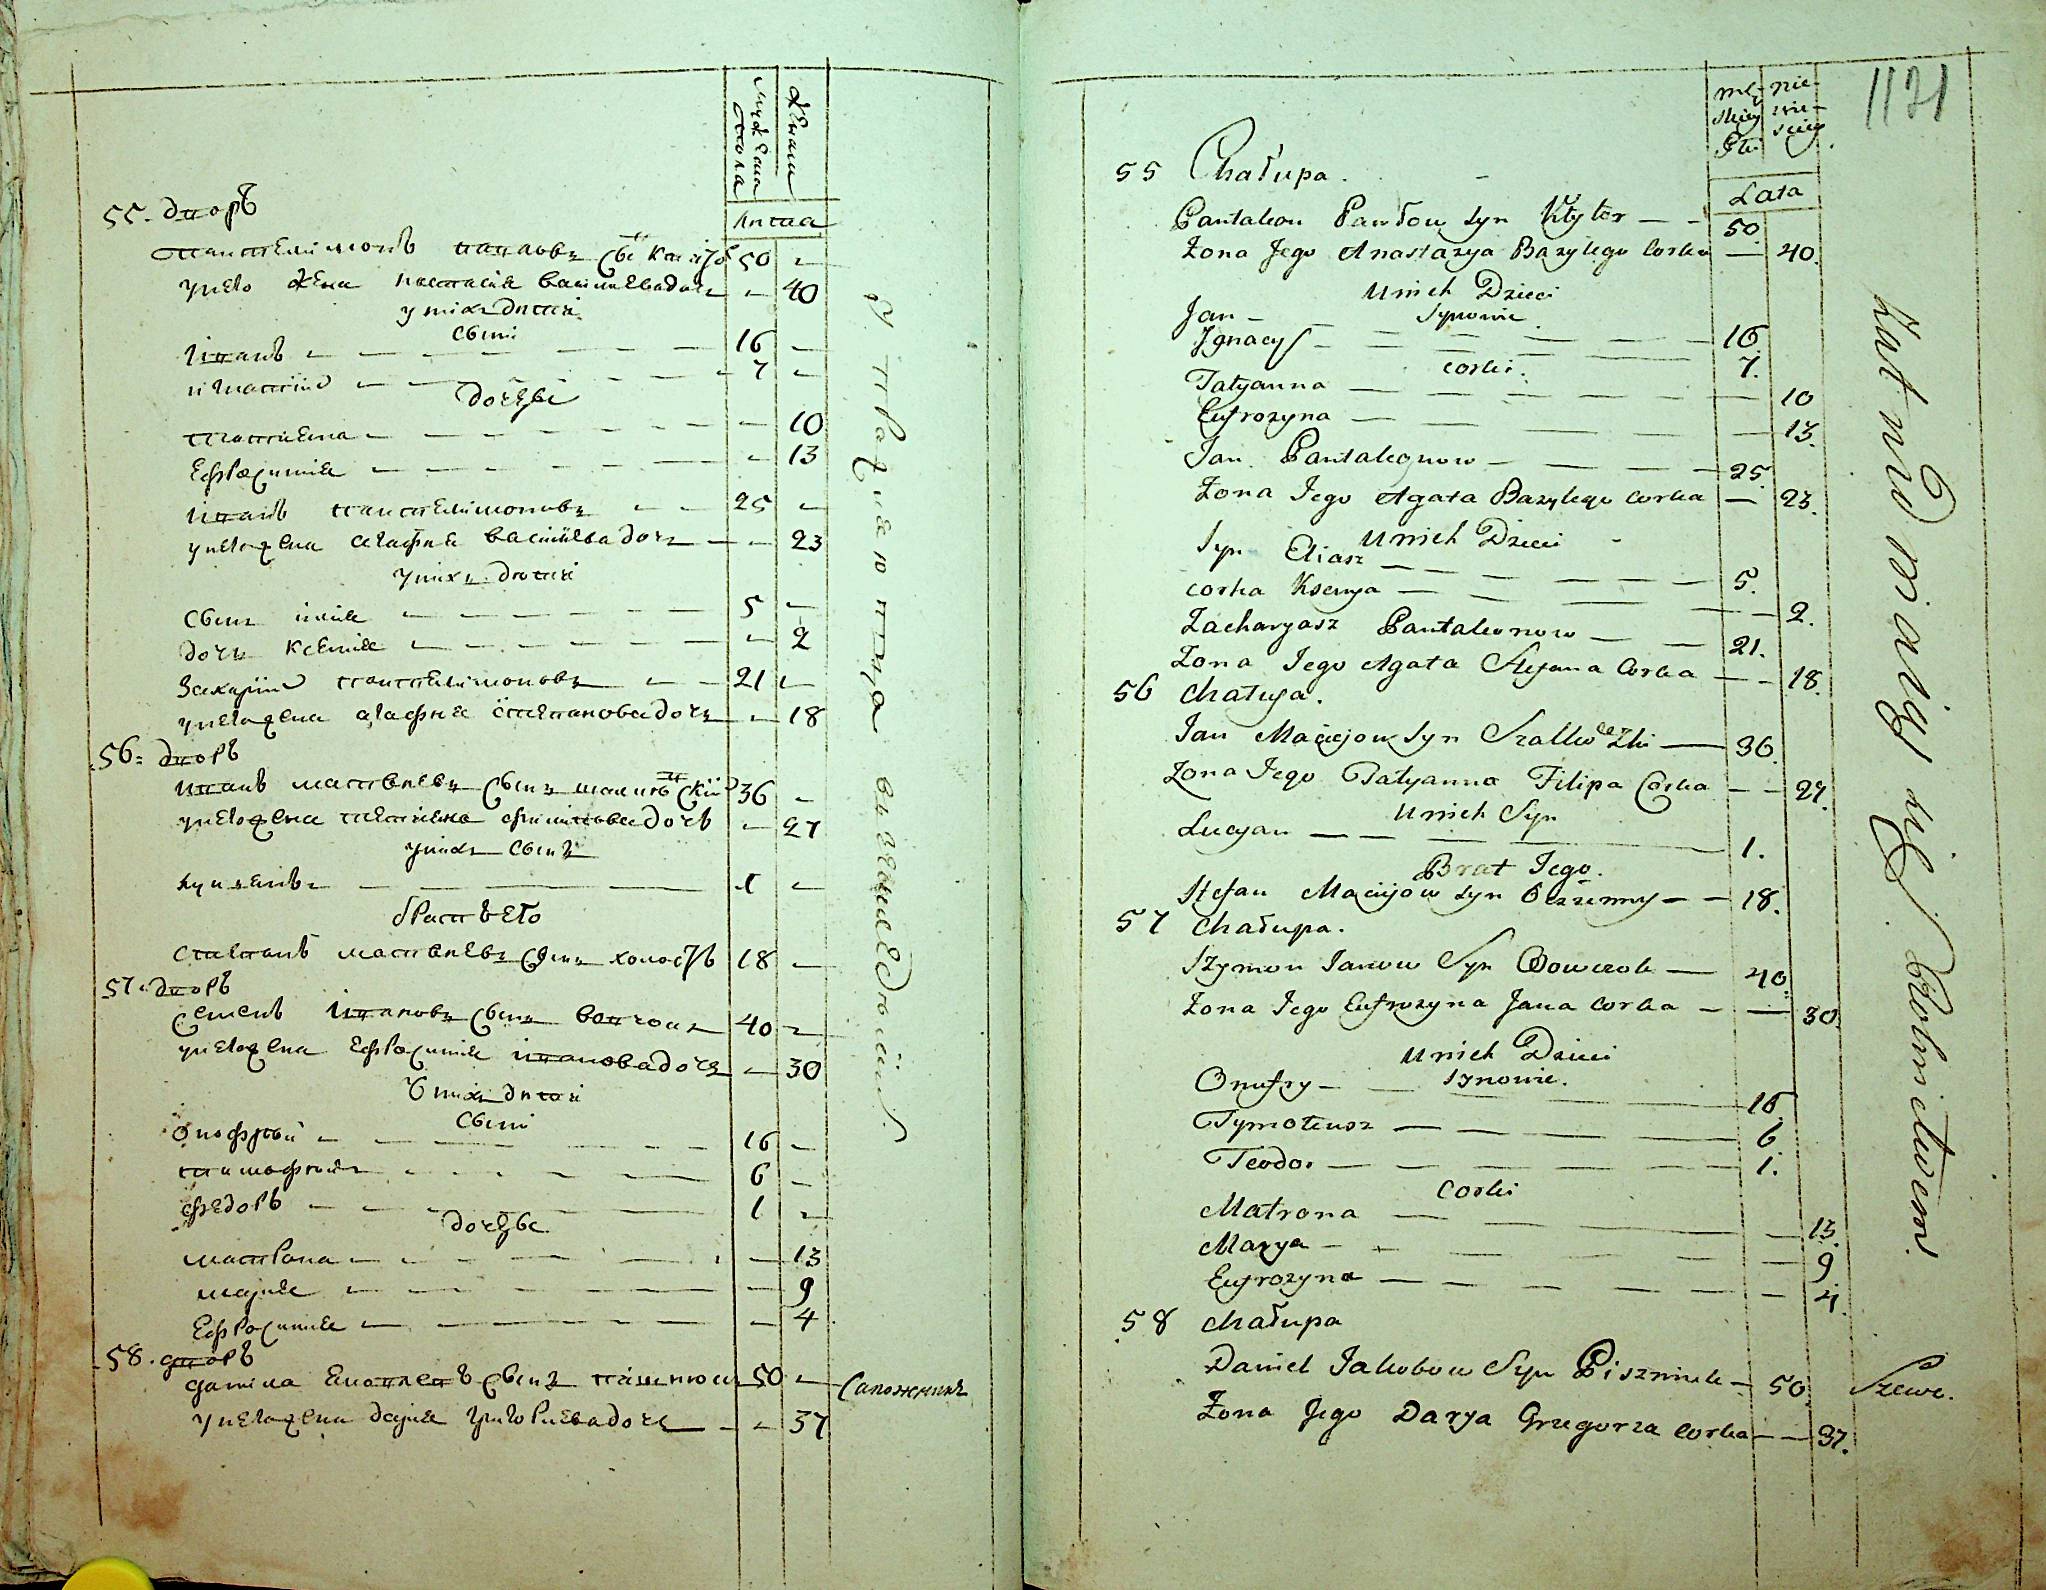 мужеска пола
женска
лѣта
55. дворъ
пантелимонъ павловъ сынъ ктиторъ 50 —
у него жена настасия василева дочъ — 40
у нихъ дѣти
сыни
иванъ — 16 —
игнатий — 7 —
дочери
татияна — — 10
ефросиния — — 13
иванъ пантелимоновъ — 25 —
у него жена агафия василева дочъ — — 23
у нихъ дѣти
сынъ илия — 5 —
дочъ ксения — — 2
захарий пантелимоновъ — 21 —
у него жена агафия степанова дочъ — 18
56. дворъ
иванъ матвѣевъ сынъ 36 —
у него жена татияна филипова дочъ — 27
у нихъ сынъ
лукиянъ — 1 —
братъ его
степанъ матвѣевъ сынъ холостъ 18 —
57. дворъ
семенъ ивановъ сынъ вовчокъ 40 —
у него жена ефросиния иванова дочъ — 30
У нихъ дѣти
сыни
онофрѣй — 16 —
тимофѣй — 6 —
федоръ — 1 —
дочери
матрона — — 13
мария — — 9
ефросиния — — 4
58. дворъ
данила яковлевъ сынъ 50 — сапожникъ
у него жена дария григориева дочъ — — 37
1121
męskiey Płci
niewieściey
Lata
55 Chałupa.
Pantaleon Pawłow Syn Ktytor — 50.
Zona Jego Anastazya Bazylego Corka — 40.
U nich Dzieci
Synowie
Jan — 16.
Jgnacy — 7.
corki.
Tatyanna — 10
Eufrozyna — 13.
Jan Pantaleonow — 25.
Zona Jego Agata Bazylego Corka — 23.
U nich Dzieci
Syn Eliasz — 5.
corka Ksenya — 2.
Zacharyasz Pantaleonow — 21.
Zona Jego Agata Stefana Corka — 18.
56 Chałupa.
Jan Maciejow Syn — 36.
Zona Jego Tatyanna Filipa Corka — 27.
U nich Syn
Lucyan — 1.
Brat Jego.
Stefan Maciejow Syn Bezżenny — 18.
57 Chałupa.
Szymon Janow Syn Wowczok — 40.
Zona Jego Eufrozyna Jana Corka — 30.
U nich Dzieci
Synowie.
Onufry — 16.
Tymoteusz — 6.
Teodor — 1.
Corki
Matrona — 13.
Marya — 9
Eufrozyna — 4.
58 Chałupa
Daniel Jakobow Syn — 50. Szewc.
Zona Jego Darya Grzegorza corka — 37.